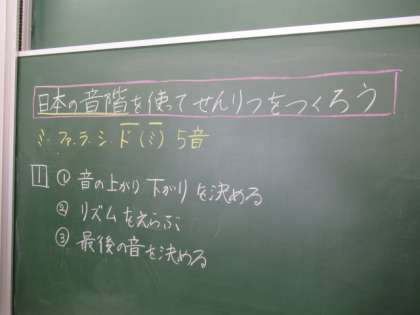 日本の音階を使ってせんりつをつくろう
ミ・ファ・ラ・シ ド(ミ) 5音
1 ① 音の上がり下がりを決める
② リズムをえらぶ
③ 最後の音を決める